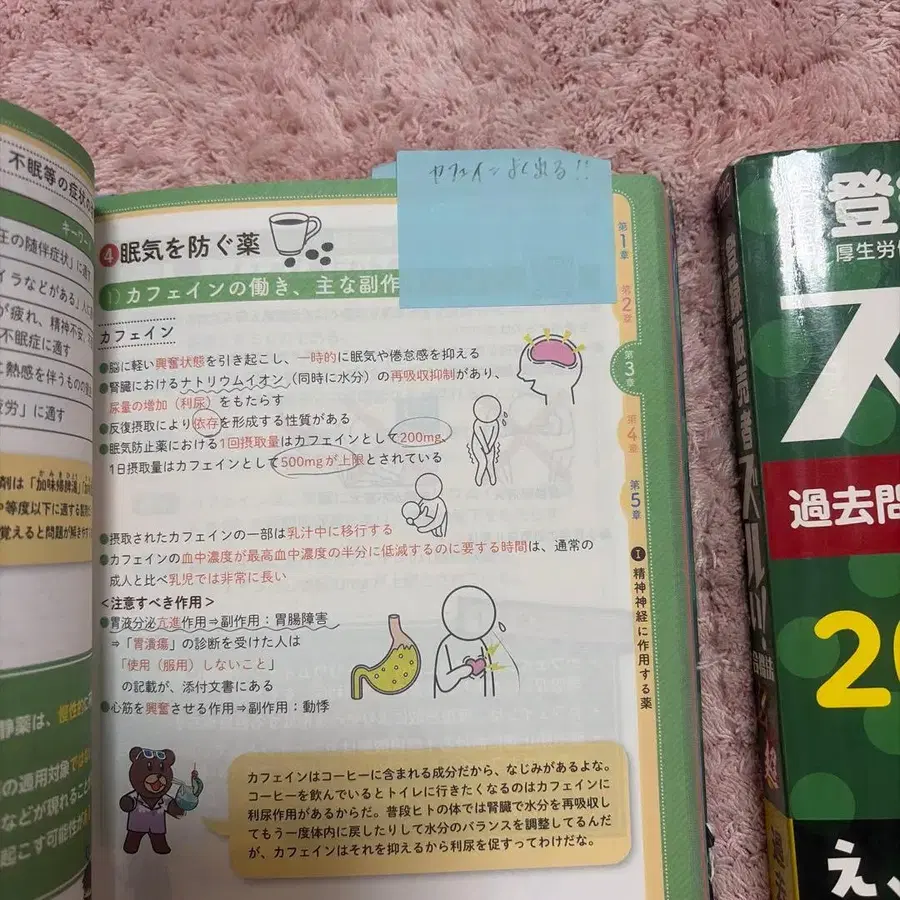 不眠等の症状
キーワー
在の随伴症状」に適
イラなどがある」人に
が疲れ、精神不安、
不眠症に適す
に熱感を伴うもの
疲労」に適す
剤は「加味帰脾湯」
や等度以下に適する
覚えると問題が解きやす
静薬は、慢性的に
の適用対象ではな
などが現れること
起こす可能性が
カフェイン よく出る!!
4 眠気を防ぐ薬
1) カフェインの働き、主な副作
カフェイン
●脳に軽い興奮状態を引き起こし、一時的に眠気や倦怠感を抑える
●腎臓におけるナトリウムイオン（同時に水分）の再吸収抑制があり、
尿量の増加（利尿）をもたらす
●反復摂取により依存を形成する性質がある
●眠気防止薬における1回摂取量はカフェインとして200mg、
1日摂取量はカフェインとして500mgが上限とされている
●摂取されたカフェインの一部は乳汁中に移行する
●カフェインの血中濃度が最高血中濃度の半分に低減するのに要する時間は、通常の
成人と比べ乳児では非常に長い
<注意すべき作用>
●胃液分泌亢進作用⇒副作用：胃腸障害
⇒「胃潰瘍」の診断を受けた人は
「使用（服用）しないこと」
の記載が、添付文書にある
●心筋を興奮させる作用⇒副作用：動悸
カフェインはコーヒーに含まれる成分だから、なじみがあるよな。
コーヒーを飲んでいるとトイレに行きたくなるのはカフェインに
利尿作用があるからだ。普段ヒトの体では腎臓で水分を再吸収し
てもう一度体内に戻したりして水分のバランスを調整してるんだ
が、カフェインはそれを抑えるから利尿を促すってわけだな。
第1章
第2章
第3章
第4章
第5章
I 精神神経に作用する薬
登
厚生労
ス
過去問
20
え、
登録販売者